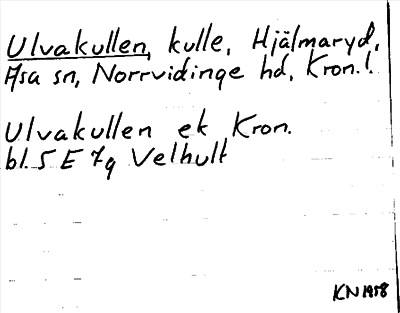 Ulvakullen, kulle, Hjälmaryd,
Asa sn, Norrvidinge hd, Kron. l.
Ulvakullen ek Kron.
bl. 5 E 7g Velhult
KN 1958